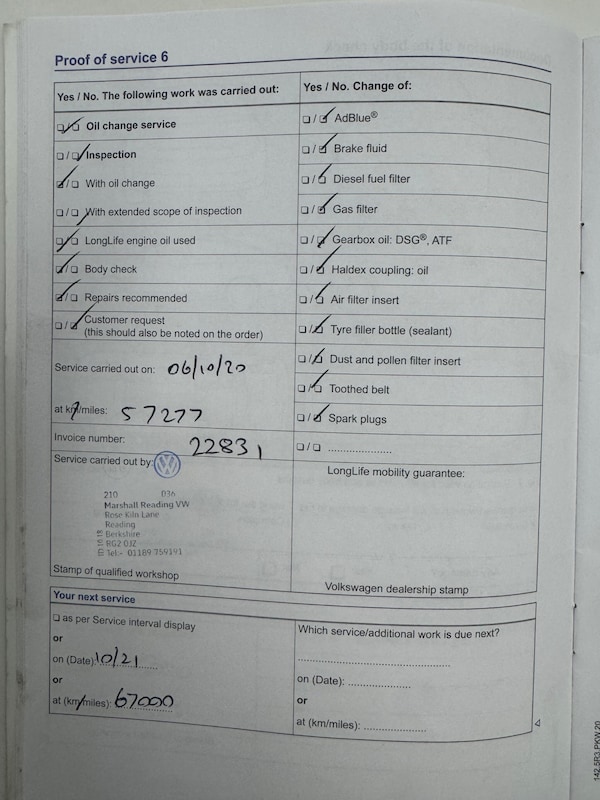 Proof of service 6
Yes / No. The following work was carried out:
☐/☐ Oil change service
☐/☐ Inspection
☐/☐ With oil change
☐/☐ With extended scope of inspection
☐/☐ LongLife engine oil used
☐/☐ Body check
☐/☐ Repairs recommended
☐/☐ Customer request
(this should also be noted on the order)
Service carried out on: 06/10/20
at km/miles: 57277
Invoice number: 22831
Service carried out by:
210 D36
Marshall Reading VW
Rose Kiln Lane
Reading
Berkshire
RG2 0JZ
Tel:- 01189 759191
Stamp of qualified workshop
Yes / No. Change of:
☐/☐ AdBlue®
☐/☐ Brake fluid
☐/☐ Diesel fuel filter
☐/☐ Gas filter
☐/☐ Gearbox oil: DSG®, ATF
☐/☐ Haldex coupling: oil
☐/☐ Air filter insert
☐/☐ Tyre filler bottle (sealant)
☐/☐ Dust and pollen filter insert
☐/☐ Toothed belt
☐/☐ Spark plugs
☐/☐ .....................
LongLife mobility guarantee:
Volkswagen dealership stamp
Your next service
☐ as per Service interval display
or
on (Date): 10/21
or
at (km/miles): 67000
Which service/additional work is due next?
on (Date): .....................
or
at (km/miles): .....................
142.5R3.PKW.20